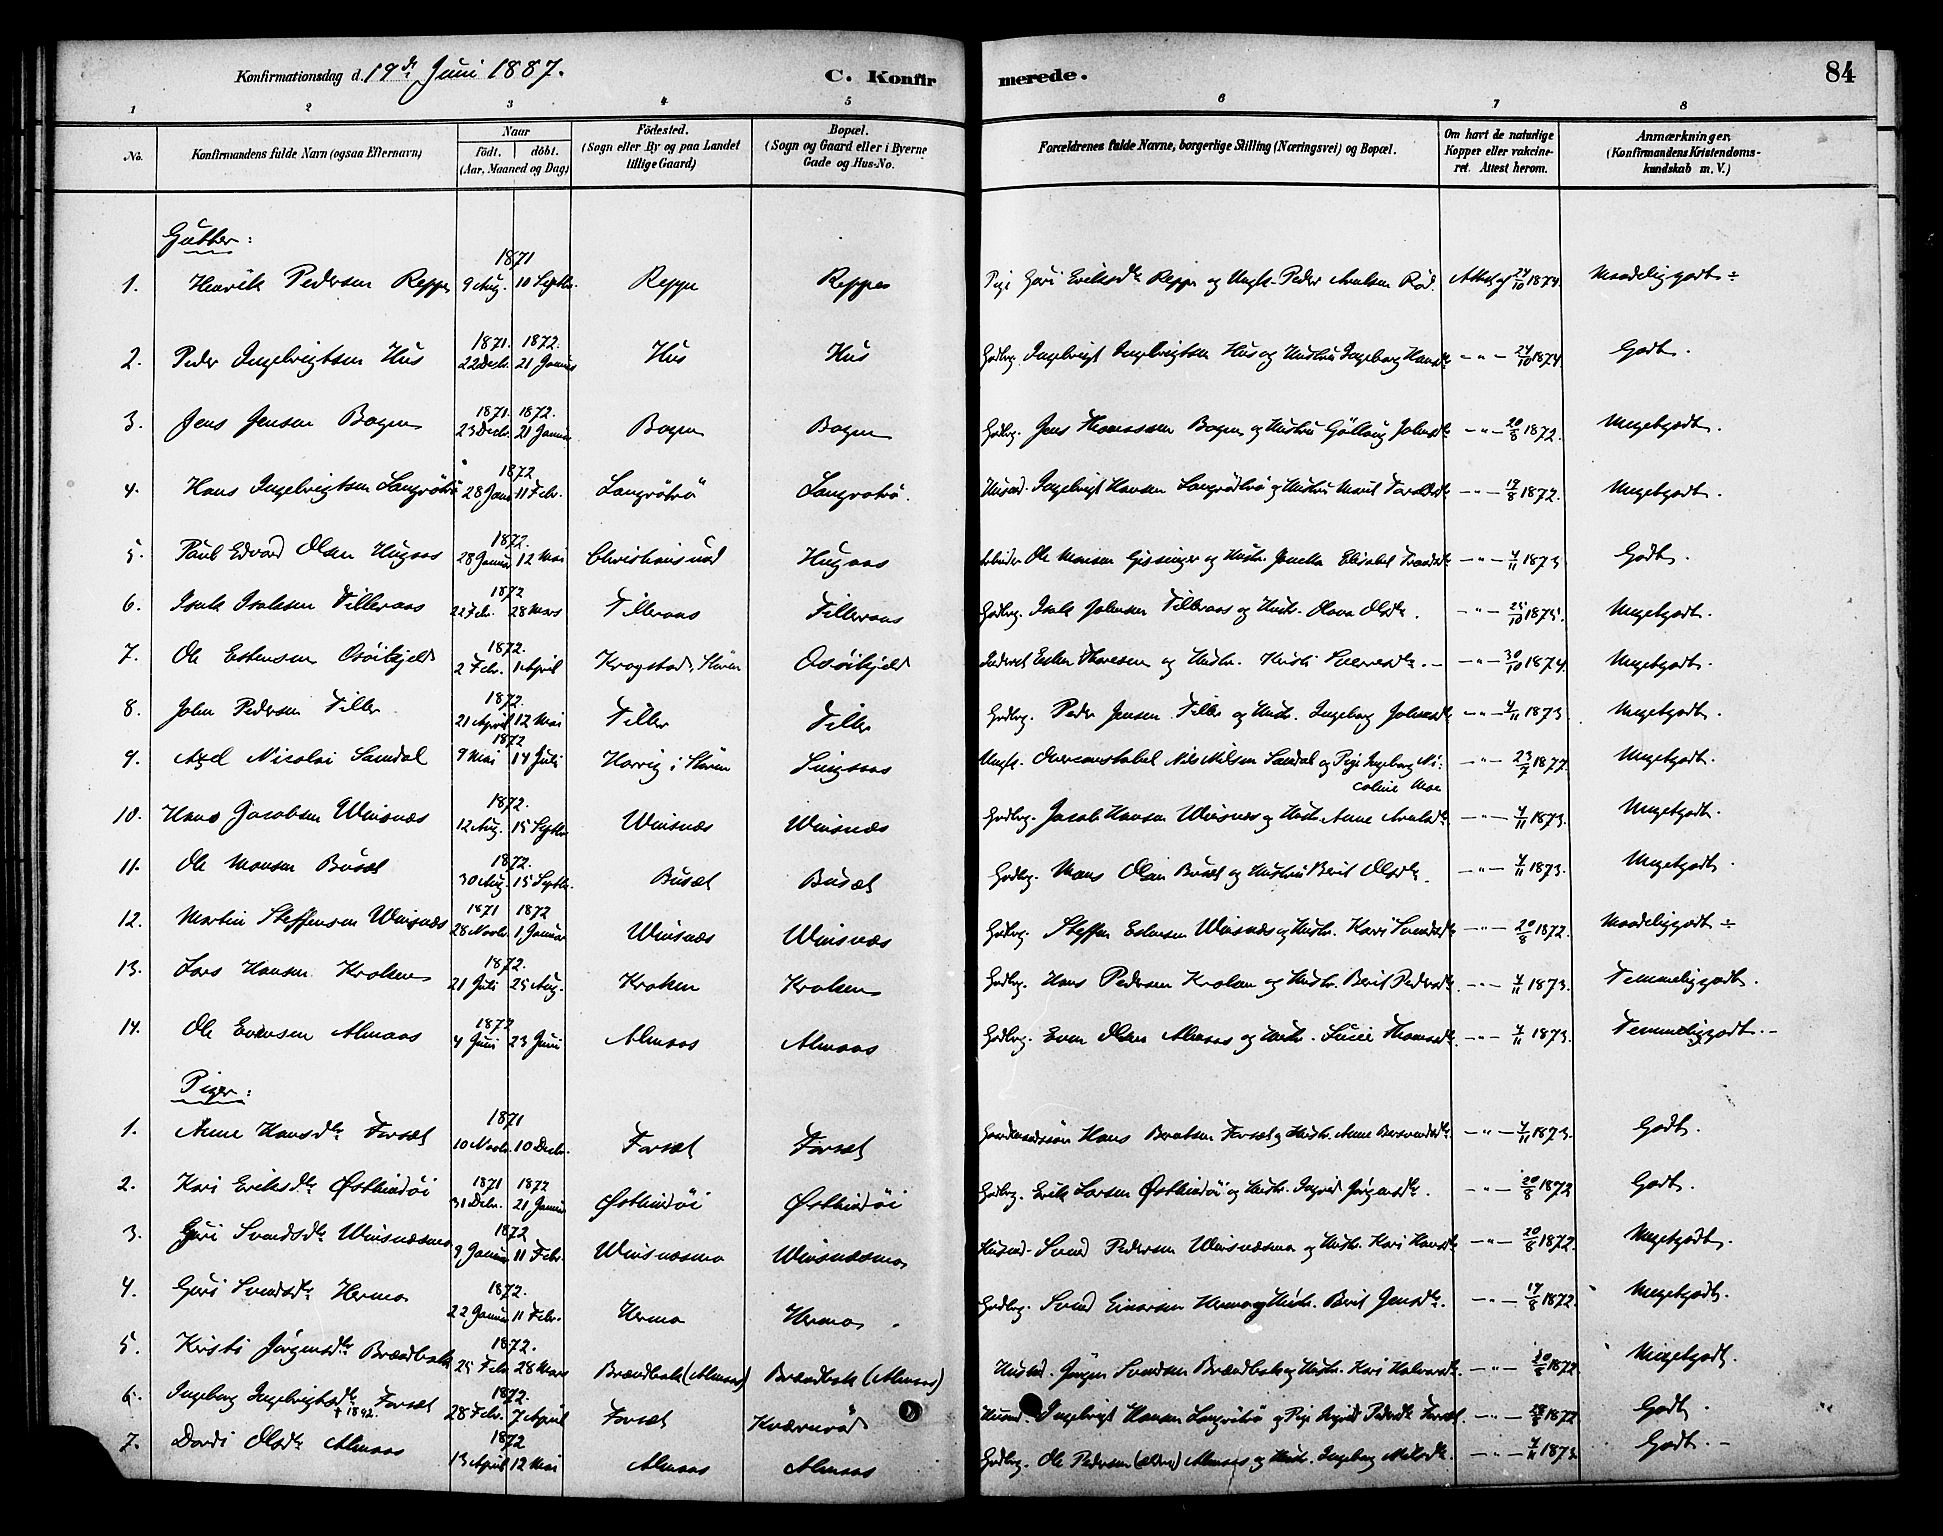 Konfirmationsdag d. 19de Juni 1887.
C. Konfirmerede.
84
1 2 3 4 5 6 7 8
No. Konfirmandens fulde Navn (ogsaa Efternavn) Naar födt. döbt. (Aar, Maaned og Dag) Födested. (Sogn eller By og paa Landet tillige Gaard) Bopæl. (Sogn og Gaard eller i Byerne Gade og Hus-No. Forældrenes fulde Navne, borgerlige Stilling (Næringsvei) og Bopæl. Om havt de naturlige Kopper eller vakcineret. Attest herom. Anmærkninger. (Konfirmandens Kristendomskundskab m. V.)
Gutter:
1. Henrik Pedersen Reppe 1871 9 Aug. 10 Septbr. Reppe Reppe Pige Guri Eriksdtr Reppe og Ungk. Peder Arntsen Rød. Attest af 24/10 1874. Maadelig godt ÷
2. Peder Ingebrigtsen Hus 1871. 22 Decbr. 1872. 21 Januar Hus Hus Gaardbrg. Ingebrigt Ingebrigtsen Hus og Hustru Ingeborg Hansdtr — " — 24/10 1874. Godt.
3. Jens Jensen Bogen 1871. 23 Decbr. 1872. 21 Januar Bogen Bogen Gaardbrg. Jens Thomassen Bogen og Hustru Gjøllaug Johnsdtr — " — 20/8 1872. Megetgodt.
4. Hans Ingebrigtsen Langrøtrø 1872 28 Janr 11 Febr. Langrøtrø Langrotrø. Husmd. Ingebrigt Hansen Langrødtrø og Hustru Marit Toraldsdtr — " — 19/8 1872. Megetgodt.
5. Paul Edvard Olsen Hugaas 1872. 28 Januar 12 Mai Christianssund Hugaas Arbeider Ole Monsen Gissinger og Hustr. Elisabet — " — 4/11 1873 Godt.
6. Isak Isaksen Tilleraas 1872 22 Febr. 28 Mars Tilleraas Tilleraas Gaardbrg. Isak Johnsen Tilleraas og Hustr. Olava Olsdtr. — " — 25/10 1875. Megetgodt.
7. Ole Estensen Osøikjeld 1872. 2 Febr. 1 April Krogstad, Støren Osøikjeld Inderst Esten Thoresen og Hustr. Kirsti Sveresdtr. — — " — 30/10 1874. Megetgodt.
8. John Pedersen Tiller 1872. 21 April 12 Mai Tiller Tiller Gaardbrg. Peder Jensen Tiller og Hustr. Ingeborg Johnsdtr — " — 4/11 1873. Megetgodt.
9. Axel Nicolai Samdal 1872 9 Mai 14 Juli Horrig i Støren Singsaas Ungk. Overconstabel Nils Nilsen Samdal og Pige Ingeborg Nicoline Moe — " — 23/7 1877. Megetgodt.
10. Hans Jacobsen Winsnæs 1872. 12 Aug. 15 Septbr. Winsnæs Winsnæs Gaardbrg. Jacob Hansen Winsnæs og Hustr. Anne Arntsdtr. — " — 4/11 1873. Megetgodt.
11. Ole Monsen Busæt 1872. 30 Aug. 15 Septbr. Busæt Busæt Gaardbrg. Mons Olsen Busæt og Hustru Berit Olsdtr. — " — 4/11 1873. Megetgodt.
12. Martin Steffensen Winsnæs 1871 28 Novbr. 1872 1 Januar Winsnæs Winsnæs Gaardbrg. Steffen Estensen Winsnæs og Hustr. Kari Svendsdtr — " — 20/8 1872. Maadeliggodt ÷
13. Lars Hansen Kroken 1872. 21 Juli 25 Aug. Kroken Kroken Gaardbrg. Hans Pedersen Kroken og Hustr. Berit Pedersdtr. — " — 4/11 1873. Temmeliggodt.
14. Ole Evensen Almaas 1872 4 Juni 23 Juni Almaas Almaas Gaardbrg. Even Olsen Almaas og Hustr. Lucie Thomasdtr. — " — 4/11 1873. Temmeliggodt. —
Piger:
1. Anne Hansdtr Forsæt 1871 10 Novbr. 10 Decbr. Forsæt Forsæt Gaardmandssøn Hans Berntsen Forsæt og Hustr. Anne Bersvendsdtr. — " — 4/11 1873. Godt.
2. Kari Eriksdtr Østhindøi 1871 31 Decbr. 1872 21 Januar Østhindøi Østhindøi Gaardbrg. Erik Larsen Østhindøi og Hustr. Ingrid Jørgensdtr. — " — 20/8 1872 Godt.
3. Guri Svendsdtr Winsnæsmo 1872 9 Januar 11 Febr. Winsnæsmo Winsnæsmo Husmd. Svend Pedersen Winsnæsmo og Hustr. Kari Hansdtr — " — 20/8 1872. Megetgodt.
4. Guri Svendsdtr Hermo 1872. 22 Januar 11 Febr. Hermo Hermo. Gaardbrg. Svend Einarsen Hermo og Hustr. Berit Jensdtr. — " — 19/8 1872. Megetgodt.
5. Kirsti Jørgensdtr Brændbak 1872. 25 Febr. 28 Mars Brændbak (Almaas) Brændbak (Almaas) Husmd. Jørgen Svendsen Brændbak og Hustr. Kari Halvorsdtr. — " — 20/8 1872. Megetgodt.
6. Ingeborg Ingebrigtsdtr Forsæt † 1892. 1872. 28 Febr. 7 April Forsæt Kværnrød Husmd. Ingebrigt Hansen Langrøtrø og Pige Ingrid Pedersdtr Forsæt — " — 1872 Godt.
7. Dordi Olsdtr Almaas 1872 13 April 12 Mai Almaas Almaas Gaardbrg. Ole Pedersen (ældre) Almaas og Hustr. Ingeborg Nilsdtr. — " — 4/11 1873. Godt. —